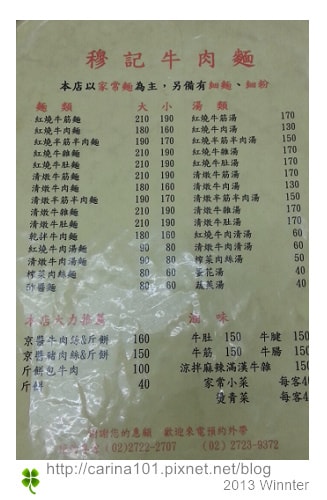 穆記牛肉麵
本店以家常麵為主，另備有細麵、細粉
麵類 大 小 湯類
紅燒牛筋麵 210 190 紅燒牛筋湯 170
紅燒牛肉麵 180 160 紅燒牛肉湯 130
紅燒半筋半肉麵 190 170 紅燒半筋半肉湯 150
紅燒牛雜麵 210 190 紅燒牛雜湯 170
紅燒牛肚麵 210 190 紅燒牛肚湯 170
清燉牛筋麵 210 190 清燉牛筋湯 170
清燉牛肉麵 180 160 清燉牛肉湯 130
清燉半筋半肉麵 190 170 清燉半筋半肉湯 150
清燉牛雜麵 210 190 清燉牛雜湯 170
清燉牛肚麵 210 190 清燉牛肚湯 170
乾拌牛肉麵 180 160 紅燒牛肉清湯 60
紅燒牛肉湯麵 90 80 清燉牛肉清湯 60
清燉牛肉湯麵 90 80 榨菜肉絲湯 50
榨菜肉絲麵 80 60 蛋花湯 40
炸醬麵 80 60 蔬菜湯 40
本店大力推薦 滷味
京醬牛肉絲&斤餅 160 牛肚 150 牛腱 150
京醬豬肉絲&斤餅 150 牛筋 150 牛腸 150
斤餅包牛肉 100 涼拌麻辣滿漢牛雜 150
斤餅 40 家常小菜 每客40
燙青菜 每客40
謝謝您的惠顧 歡迎來電預約外帶
(02)2722-2707 (02)2723-9372
http://carina101.pixnet.net/blog
2013 Winnter